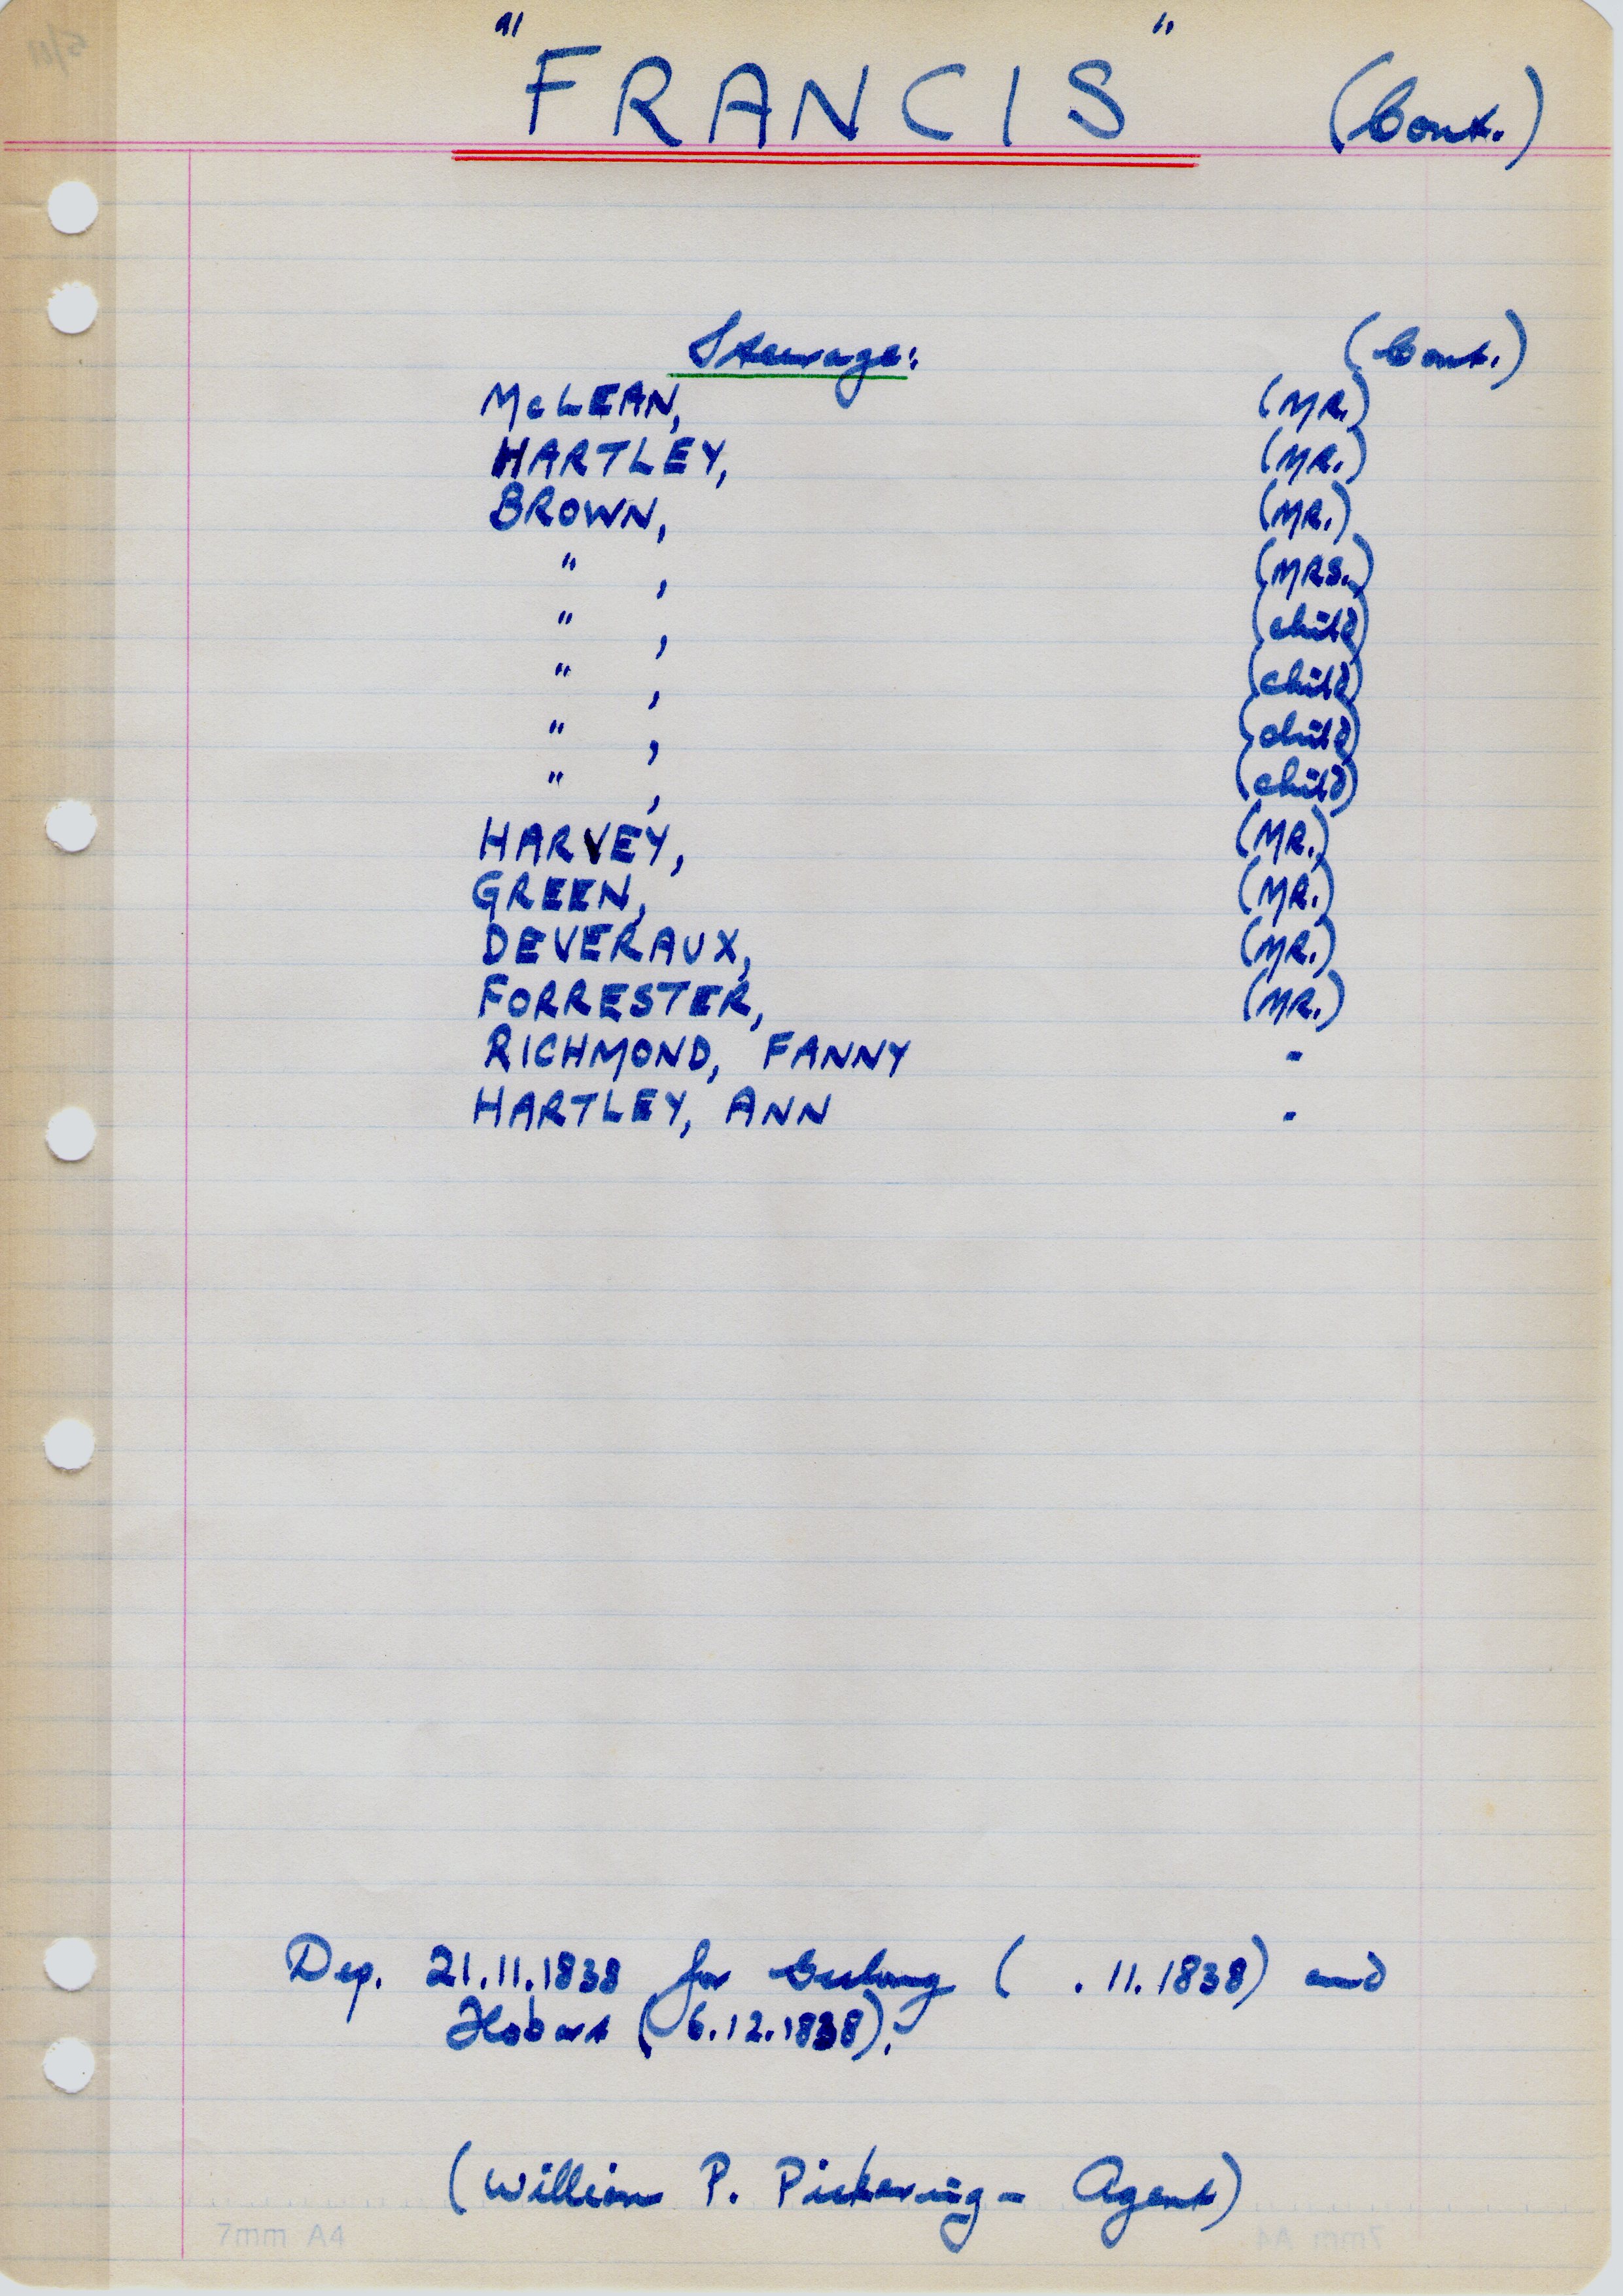 "FRANCIS" (Cont.)
Steerage: (Cont.)
McLEAN, (MR.)
HARTLEY, (MR.)
BROWN, (MR.)
" , (MRS.)
" , (child)
" , (child)
" , (child)
" , (child)
HARVEY, (MR.)
GREEN, (MR.)
DEVERAUX, (MR.)
FORRESTER, (MR.)
RICHMOND, FANNY -
HARTLEY, ANN -
Dep. 21.11.1838 for Geelong ( . 11. 1838) and
Hobart (6.12.1838).
(William P. Pickering - Agent)
7mm A4